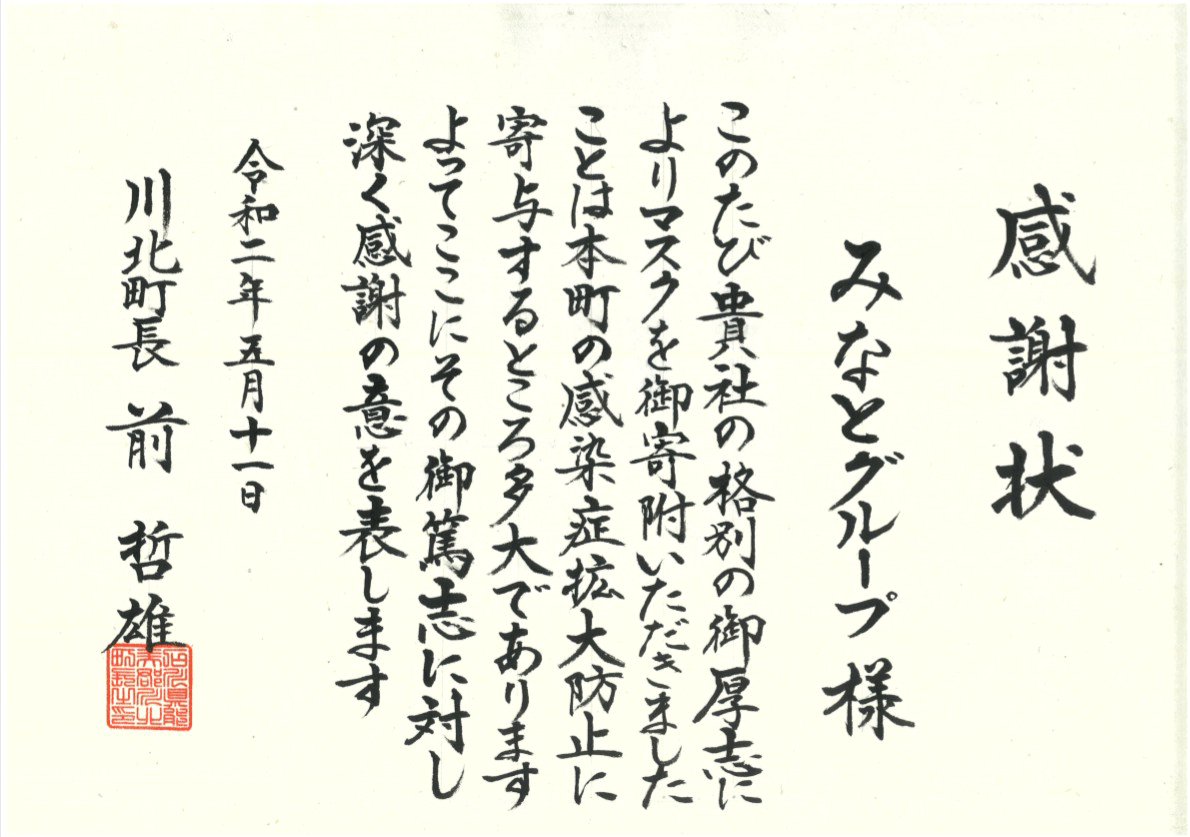 感謝状
みなとグループ 様
このたび貴社の格別の御厚志に
よりマスクを御寄附いただきました
ことは本町の感染症拡大防止に
寄与するところ多大であります
よってここにその御篤志に対し
深く感謝の意を表します
令和二年五月十一日
川北町長 前 哲雄